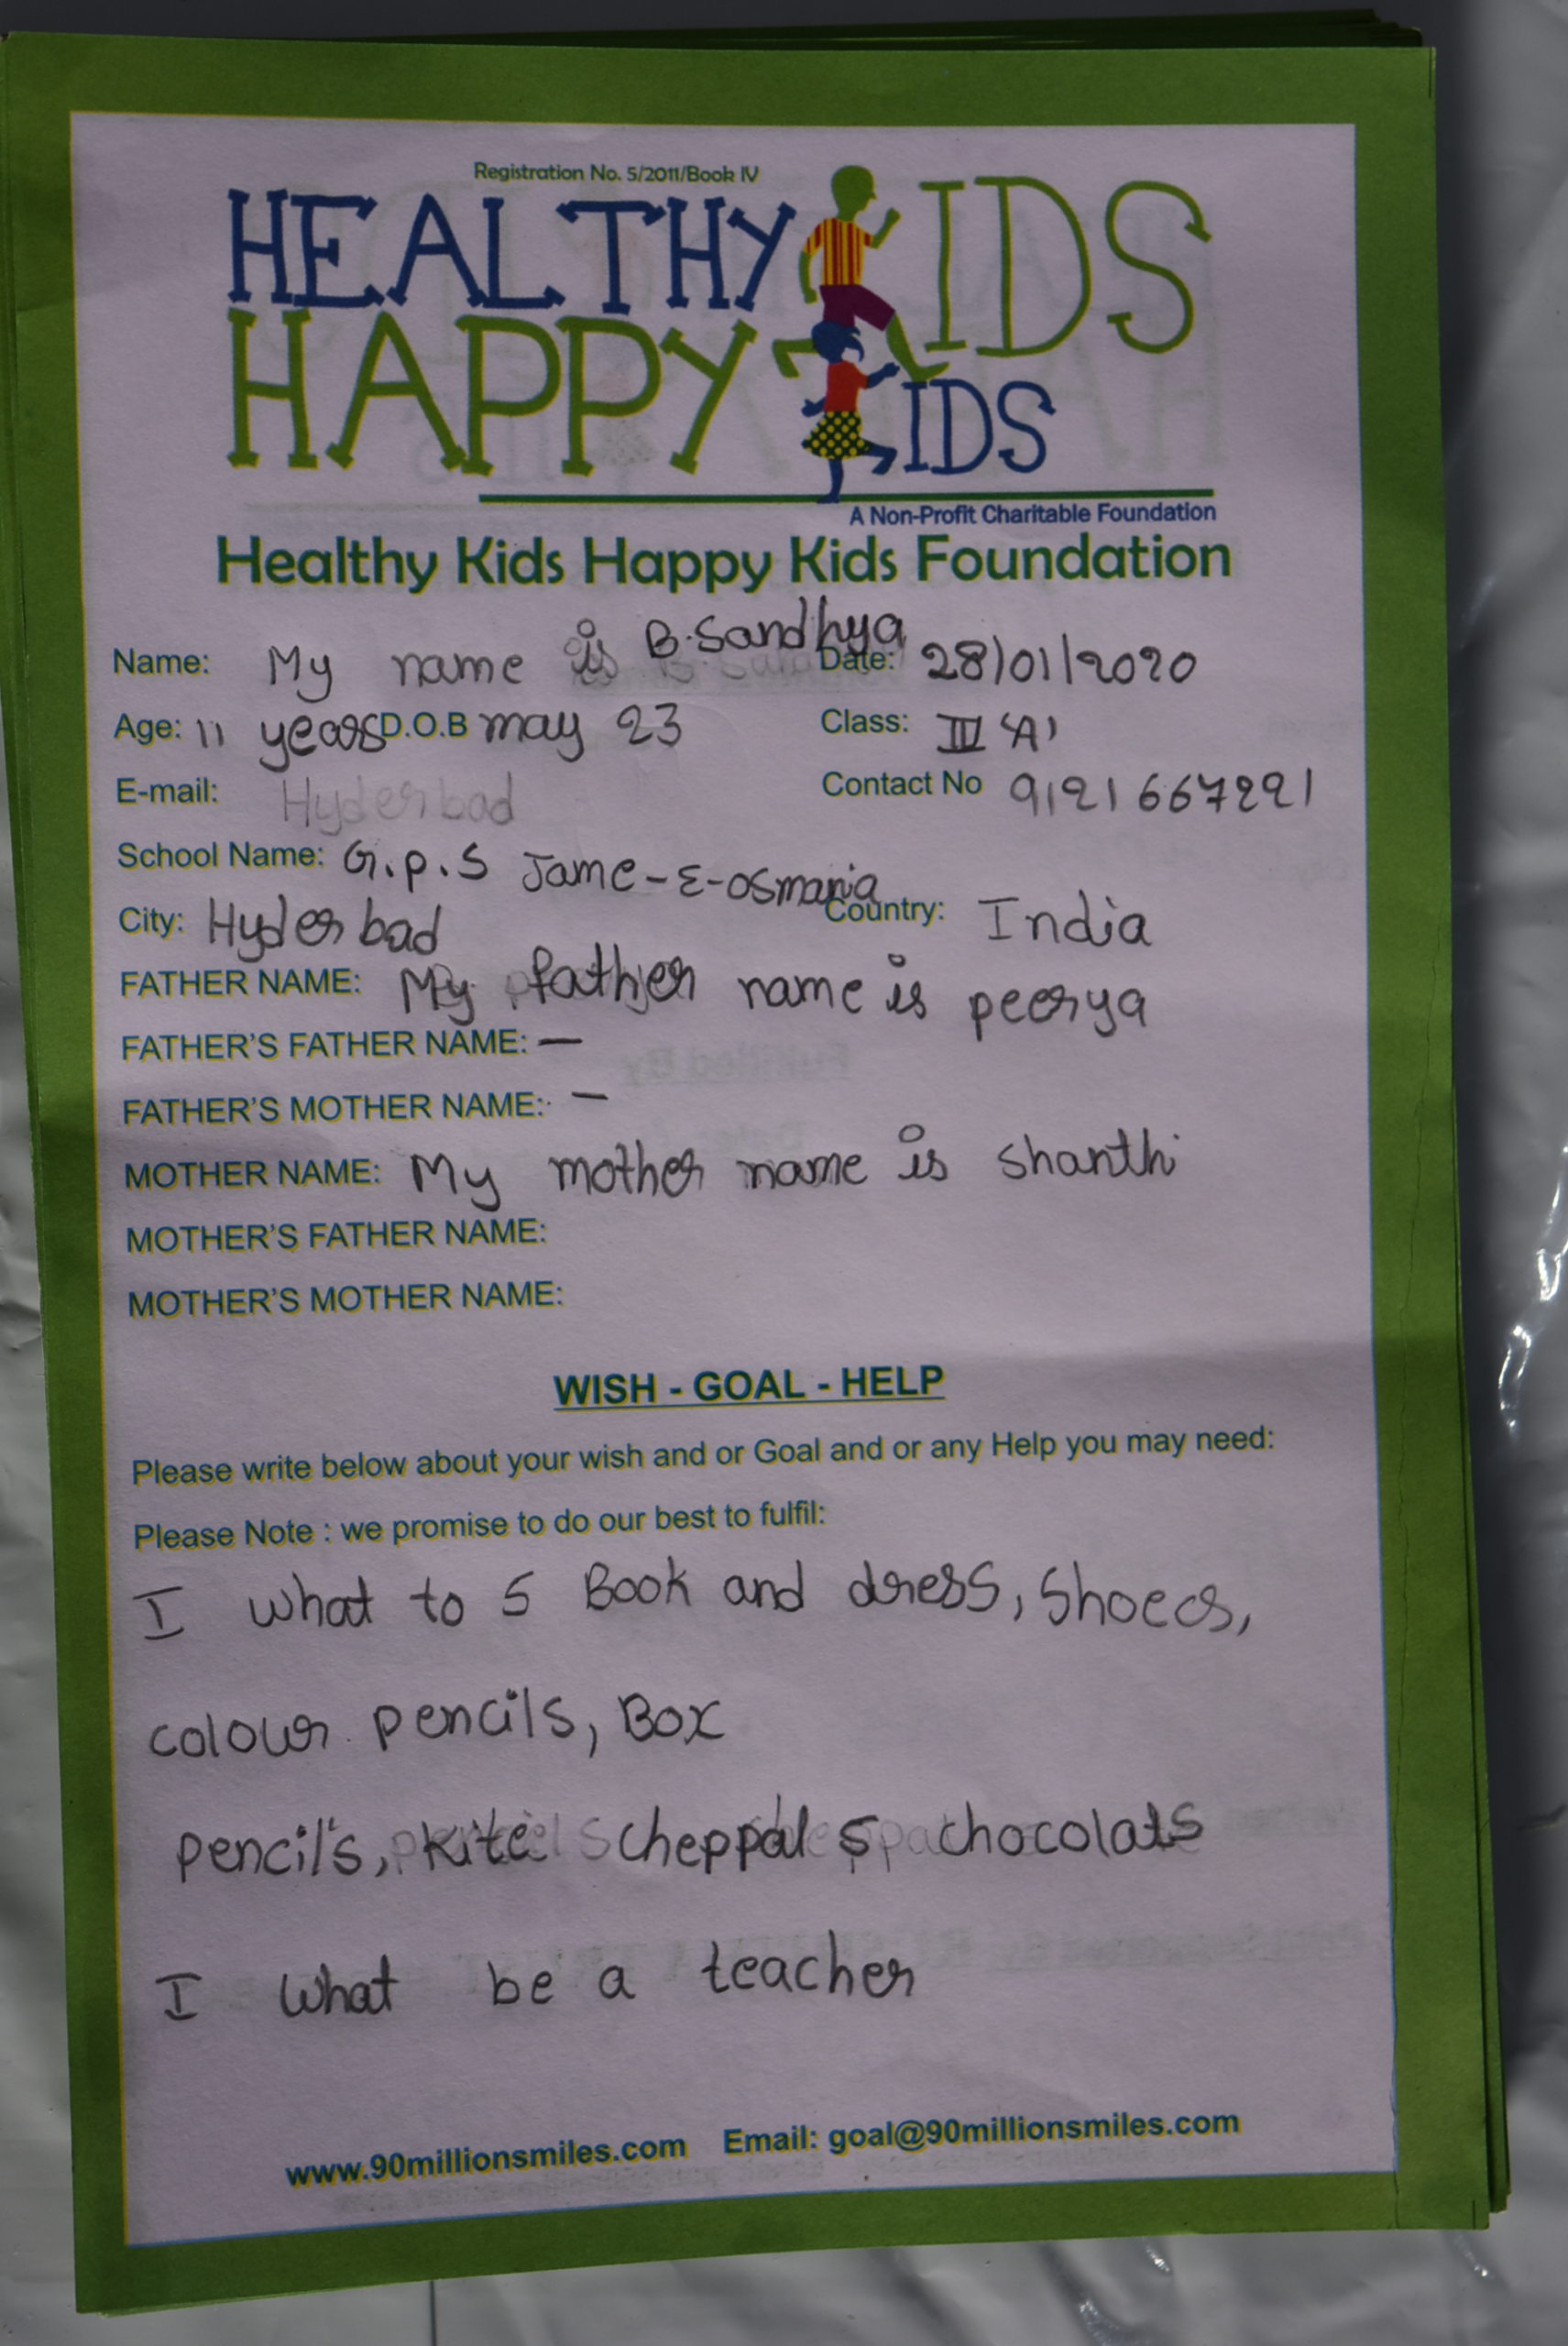 Registration No. 5/2011/Book IV
HEALTHY KIDS
HAPPY KIDS
A Non-Profit Charitable Foundation
Healthy Kids Happy Kids Foundation
Name: My name is B.Sandhya Date: 28/01/2020
Age: 11 years D.O.B may 23 Class: III 'A'
E-mail: Hyderbad Contact No 9121667221
School Name: G.P.S Jame-E-osmania
City: Hyderbad Country: India
FATHER NAME: My father name is peerya
FATHER'S FATHER NAME: —
FATHER'S MOTHER NAME: —
MOTHER NAME: My mother name is shanthi
MOTHER'S FATHER NAME:
MOTHER'S MOTHER NAME:
WISH - GOAL - HELP
Please write below about your wish and or Goal and or any Help you may need:
Please Note : we promise to do our best to fulfil:
I what to 5 Book and dress, shoees,
colour pencils, Box
pencil's, kite cheppal 5 chocolats
I what be a teacher
www.90millionsmiles.com Email: goal@90millionsmiles.com